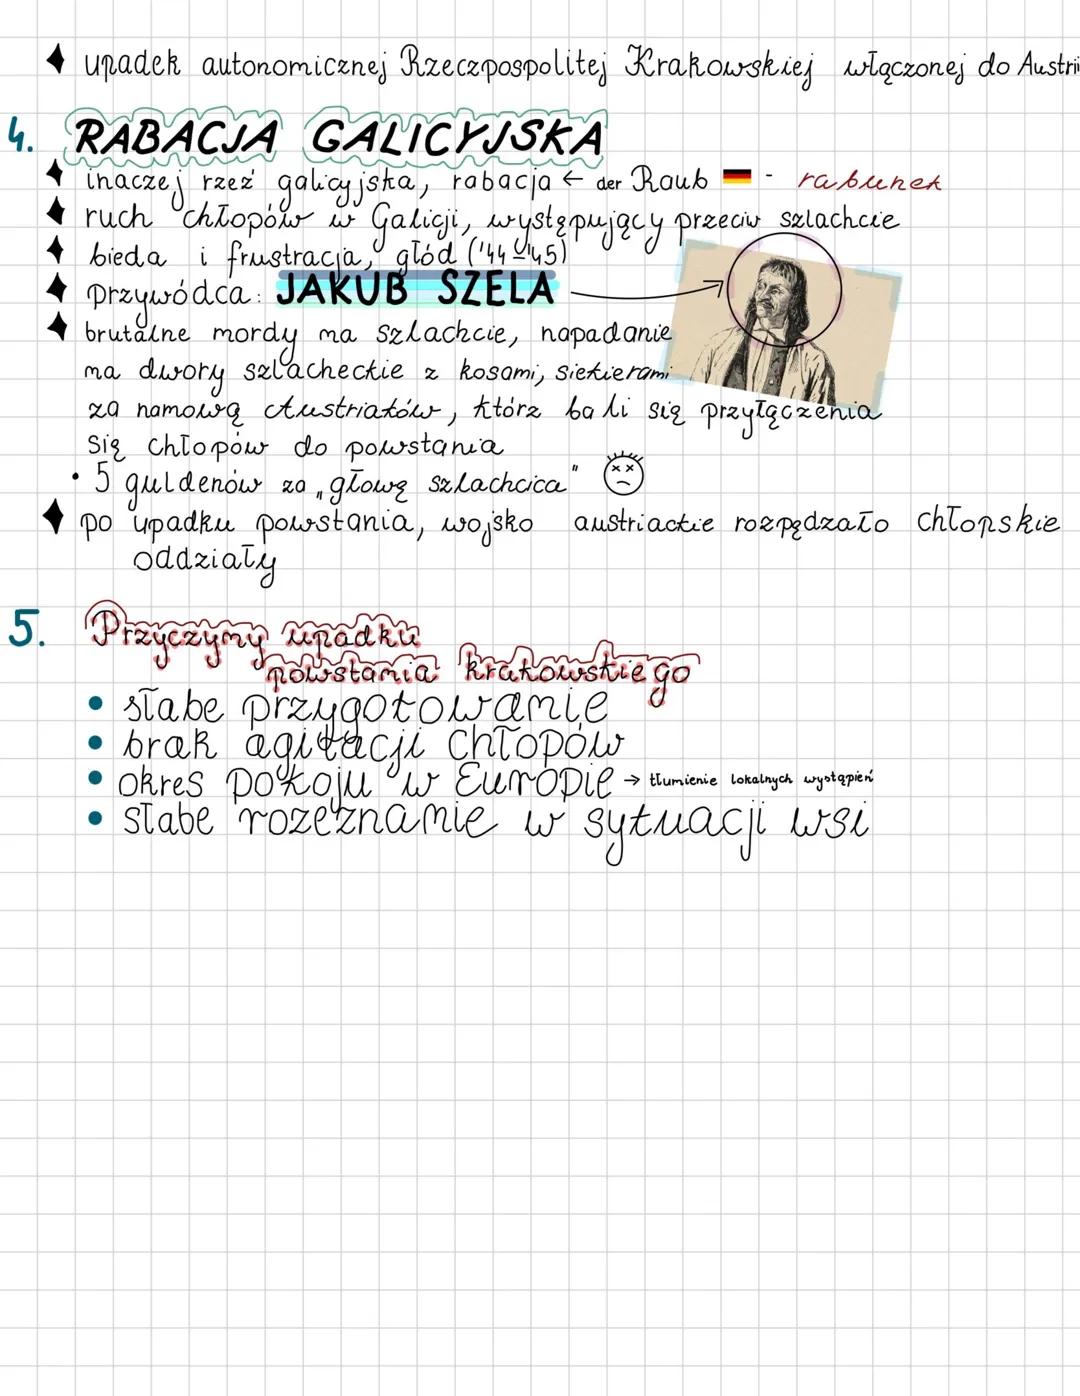 upadek autonomicznej Rzeczpospolitej Krakowskiej włączonej do Austrii
4. RABACJA GALICYJSKA
inaczej rzeź galicyjska, rabacja ← der Raub - rabunek
ruch chłopów w Galicji, występujący przeciw szlachcie
bieda i frustracja, głód ('44-'45)
przywódca: JAKUB SZELA
brutalne mordy na szlachcie, napadanie
na dwory szlacheckie z kosami, siekierami
za namową Austriaków, którz bali się przyłączenia
się chłopów do powstania
• 5 guldenów za „głowę szlachcica"
po upadku powstania, wojsko austriackie rozpędzało chłopskie
oddziały
5. Przyczyny upadku
powstania krakowskiego
• słabe przygotowanie
• brak agitacji chłopów
• okres pokoju w Europie → tłumienie lokalnych wystąpień
• słabe rozeznanie w sytuacji wsi